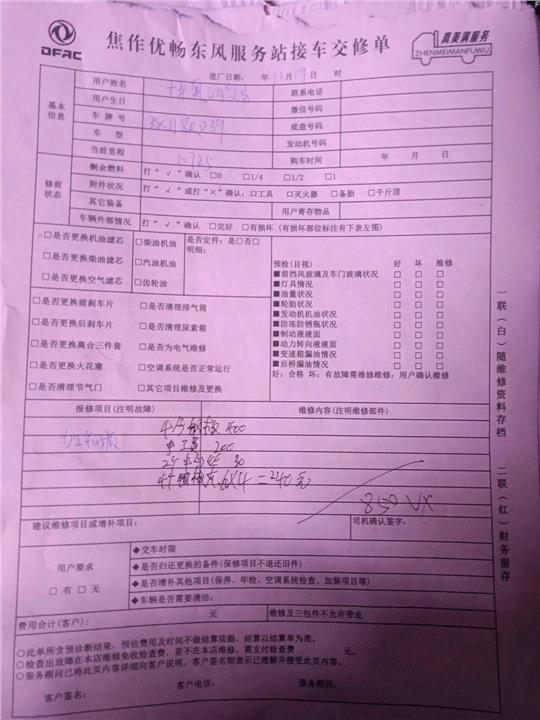 DFAC
焦作优畅东风服务站接车交修单
真美满服务
ZHENMEIMANFUWU
进厂日期： 年 11月 19日 时
基本信息
用户姓名
联系电话
用户生日
微信号码
车牌号
底盘号码
车型
发动机号码
当前里程
购车时间 年 月 日
修前状态
剩余燃料 打“√”确认 □0 □1/4 □1/2 □1
附件状况 打“√”或打“×”确认：□工具 □灭火器 □备胎 □千斤顶
其它装备 用户寄存物品
车辆外部情况 打“√”确认 □完好 □有损坏（有损坏部位标注有下表左图）
□是否更换机油滤芯 □柴油机油 是否定件：是□否□
明细：
□是否更换柴油滤芯 □汽油机油
□是否更换空气滤芯 □齿轮油
□是否更换前刹车片 □是否清理排气筒
□是否更换后刹车片 □是否清理尿素箱
□是否更换离合三件套 □是否为电气维修
□是否更换火花塞 □空调系统是否正常运行
□是否清理节气门 □其它项目维修及更换
预检(目视) 好 坏 维修
■前挡风玻璃及车门玻璃状况 □ □ □
■灯具情况 □ □ □
■油量状况 □ □ □
■轮胎状况 □ □ □
■发动机机油状况 □ □ □
■防冻防锈瓶状况 □ □ □
■制动液液面 □ □ □
■动力转向液液面 □ □ □
■变速箱漏油情况 □ □ □
■后桥漏油情况 □ □ □
好：合格 坏：有故障需维修维修：用户确认维修
报修项目(注明故障) 维修内容(注明维修部件)
400
200
30
6X4=240元
850
建议维修项目或增补项目： 司机确认签字：
用户要求
□有□无
◆交车时限
◆是否归还更换的备件(保修项目不退还旧件)
◆是否增补其他项目(保养、年检、空调系统检查、加装项目等)
◆车辆是否需要清洁：
费用合计(客户)： 元 维修及三包件不允许带走
○此单所含预诊断结果，预估费用及时间不做结算依据，结算以结算单为准。
○检查出故障在本店维修免收检查费，若不在本店维修，需支付检查费 元。
○服务顾问已将此页内容详细向客户说明，客户签名则表示已理解并接受此页内容。
客户签名： 客户电话： 服务顾问：
一联（白）随维修资料存档 二联（红）财务留存